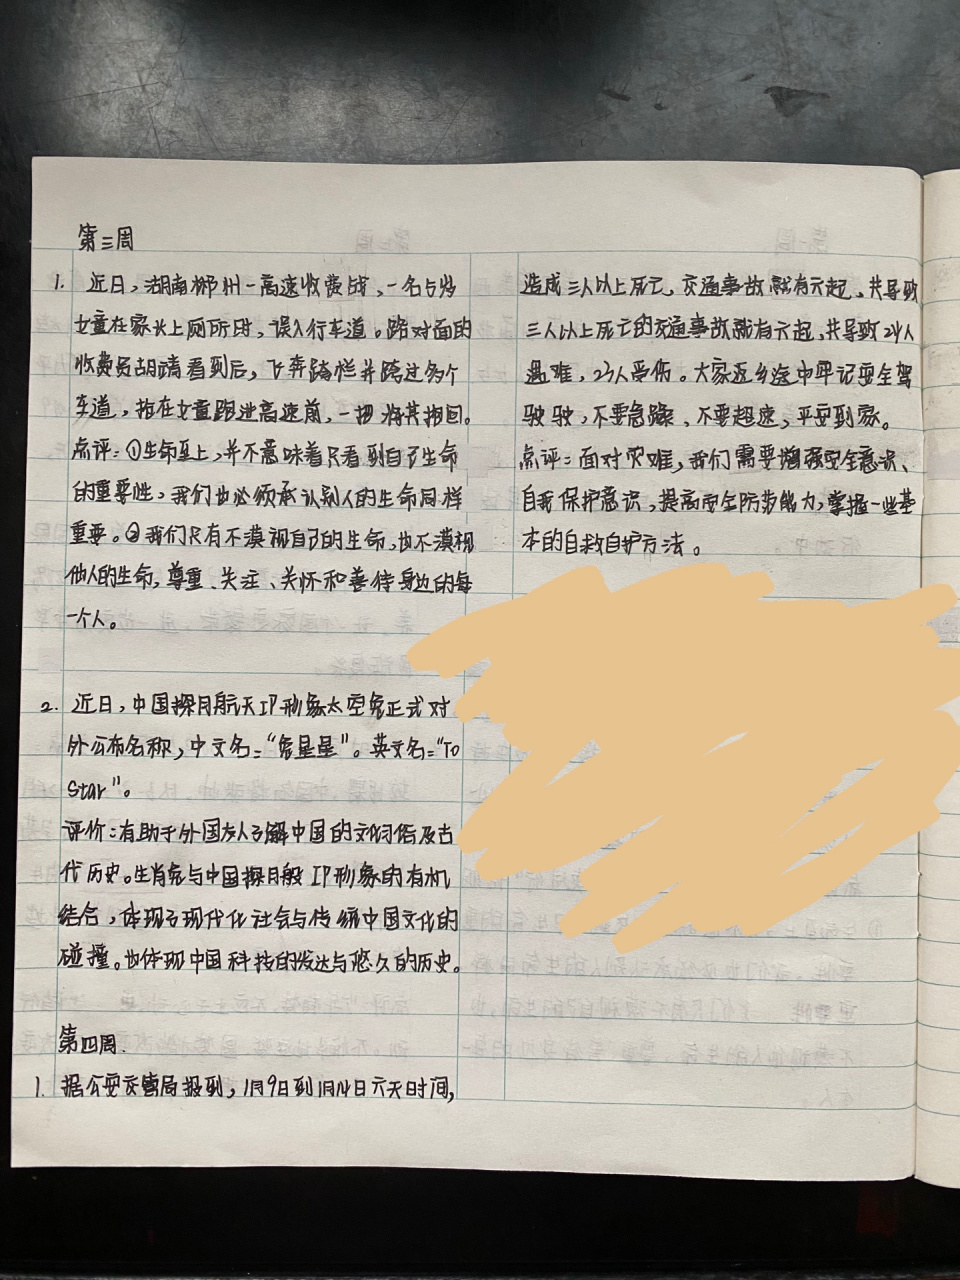 第三周
1. 近日，湖南郴州一高速收费站，一名5岁
女童在家长上厕所时，误入行车道。路对面的
收费员胡靖看到后，飞奔跨栏并跨过多个
车道，抢在女童跑进高速前，一把将其抱回。
点评：①生命至上，并不意味着只看到自己生命
的重要性，我们也必须承认别人的生命同样
重要。②我们只有不漠视自己的生命，也不漠视
他人的生命，尊重、关注、关怀和善待身边的每
一个人。
2. 近日，中国探月航天IP形象太空兔正式对
外公布名称，中文名="兔星星"。英文名="To
Star"。
评价：有助于外国友人了解中国的文化习俗及古
代历史。生肖兔与中国探月般IP形象的有机
结合，体现了现代化社会与传统中国文化的
碰撞。也体现中国科技的发达与悠久的历史。
第四周.
1. 据公安交管局报到，1月9日到1月14日六天时间，
造成三人以上死亡，交通事故就有六起，共导致
三人以上死亡的交通事故就有六起，共导致24人
遇难，23人受伤。大家返乡途中牢记安全驾
驶驶，不要急躁，不要超速，平安到家。
点评：面对灾难，我们需要增强安全意识、
自我保护意识，提高安全防步能力，掌握一些基
本的自救自护方法。